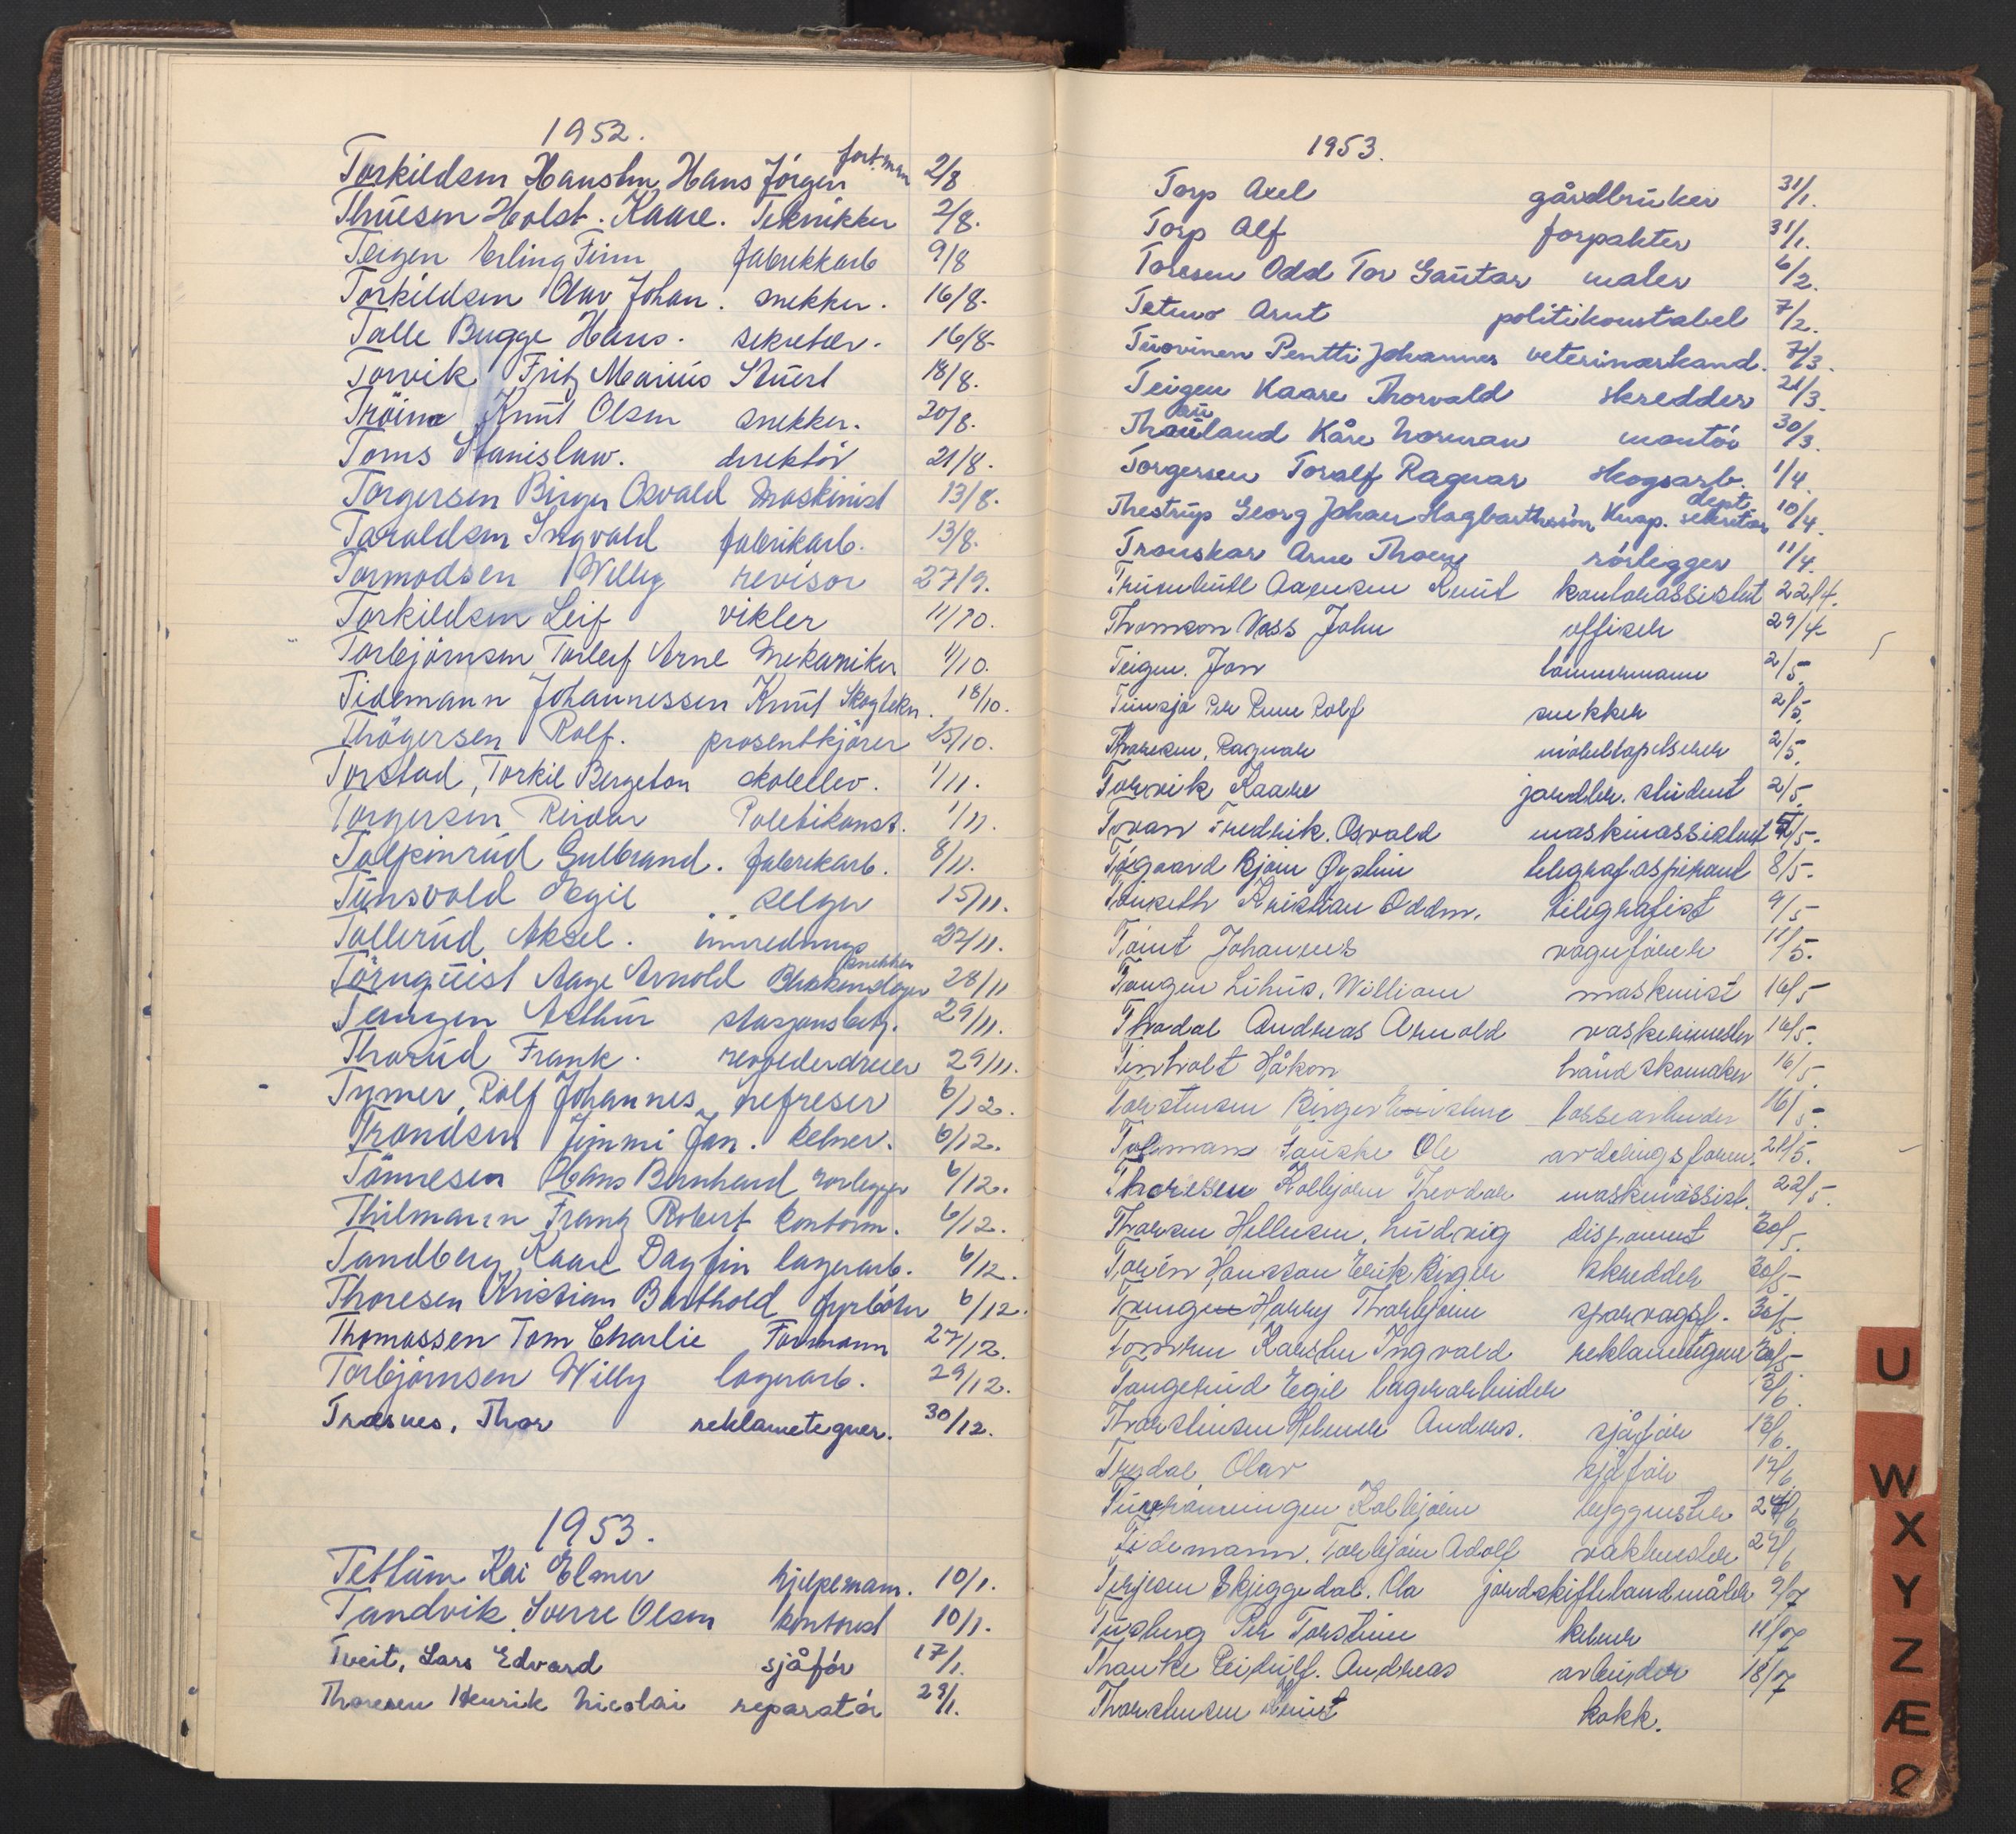 1952.
Torkildsen Hans Jörgen 2/8
Thuesen Holst. Kaare. Teknikker 2/8.
Teigen Erling Finn fabrikkarb 9/8
Torkildsen Olav Johan. snekker. 16/8.
Talle Bugge Hans. sekretær. 16/8
Torvik Fritz Marius Stuert 18/8.
Tröina Knut Olsen snekker. 20/8.
Toms Stanislaw. direktör 21/8.
Torgersen Birger Osvald Maskinist 13/8.
Taraldsen Ingvald fabrikarb. 13/8.
Tormodsen Willy revisor 27/9.
Torkildsen Leif vikler 11/10.
Torbjörnsen Torleif Arne Mekaniker 11/10.
Tidemann Johannessen Knut Skogtekn. 18/10.
Thögersen Rolf. prosentkjörer 25/10.
Torstad, Torkil Bergeton skoleelev. 1/11.
Torgersen Reidar Politikonst. 1/11.
Talpinrud Gulbrand. fabrikarb. 8/11.
Tunsvold Egil selger 15/11.
Tollerud Aksel. innrednings snekker 22/11.
Törnquist Aage Arnold 28/11
Tangen Arthur stasjonsbetj. 29/11.
Thorud Frank. revolverdreier 29/11.
Tymer, Rolf Johannes, hefreser 6/12.
Trondsen Jimmi Jan. kelner. 6/12.
Tönnesen Hans Bernhard rörlegger 6/12.
Thilmann Frantz Robert kontorm. 6/12.
Tandberg Kaare Dagfin lagerarb. 6/12.
Thoresen Kristian Barthold fyrböter 6/12.
Thomassen Tom Charlie Formann 27/12.
Torbjörnsen Willy lagerarb. 29/12.
Træsnes, Thor reklametegner. 30/12.
1953.
Tettum Kai Elmer hjelpemann. 10/1.
Tandvik, Sverre Olsen kontorist 10/1.
Tveit, Lars Edvard sjåför 17/1.
Thoresen Henrik Nicolai reparatör 29/1.
1953.
Torp Axel gårdbruker 31/1.
Torp Alf forpakter 31/1.
Toresen Odd Tor Gautar maler 6/2.
Tetmo Arnt politikonstabel 7/2.
Tuovinen Pentti Johannes veterinærkand. 7/3.
Teigen Kaare Thorvald skredder 21/3.
au
Thauland Kåre Norman montör 30/3.
Torgersen Toralf Ragnar Skogsarb. 1/4.
Thestrup Georg Johan Knap. dept. sekretær 10/4.
Tronskar Arne rörlegger 11/4.
Trumbull Aarensen Knut kontorassistent 22/4.
Thomson Voss John offiser 29/4
Teigen. Jon lönnsmann 2/5.
Per Rune Rolf snekker 2/5.
Thoresen, Ragnar möbeltapetserer 2/5.
Torvik Kaare jordbr. student 2/5.
Tovan Fredrik. Osvald maskinassistent 5/5.
Bjørn Øystein telegraf.aspirant 8/5.
Kristian Oddm. telegrafist 9/5
Johannes vognförer 11/5.
Tangen William maskinist 16/5
Andreas Arnold vaskerimester 16/5.
Håkon håndskomaker 16/5.
Torstensen Birger lossearbeider 16/5.
Tolmann Fauske Ole avdelingsform. 21/5.
Thoresen Kolbjörn Theodor maskinassist. 22/5.
Thorsen Hellesen, Ludvig disponent 30/5.
Torén Hansson Erik Birger skredder 30/5
Harry Thorbjörn sporvognsf. 30/5.
Karsten Ingvald reklametegner 30/5
Tangerud Egil lagerarbeider 3/6.
Thorsteinsen Helmer Anders. sjåför 13/6.
Tresdal Olav sjåför 17/6.
Kolbjörn byggmester 24/6
Tidemann. Torbjörn Adolf vaktmester 27/6
Terjesen Skjeggedal. Ola jordskiftelandmåler 9/7
Tusberg Per Torstein kelner 11/7
Thanke Leidulf. Andreas arbeider 18/7
Thorstensen Knut kokk.
U
W
X
Y
Z
Æ
Ø